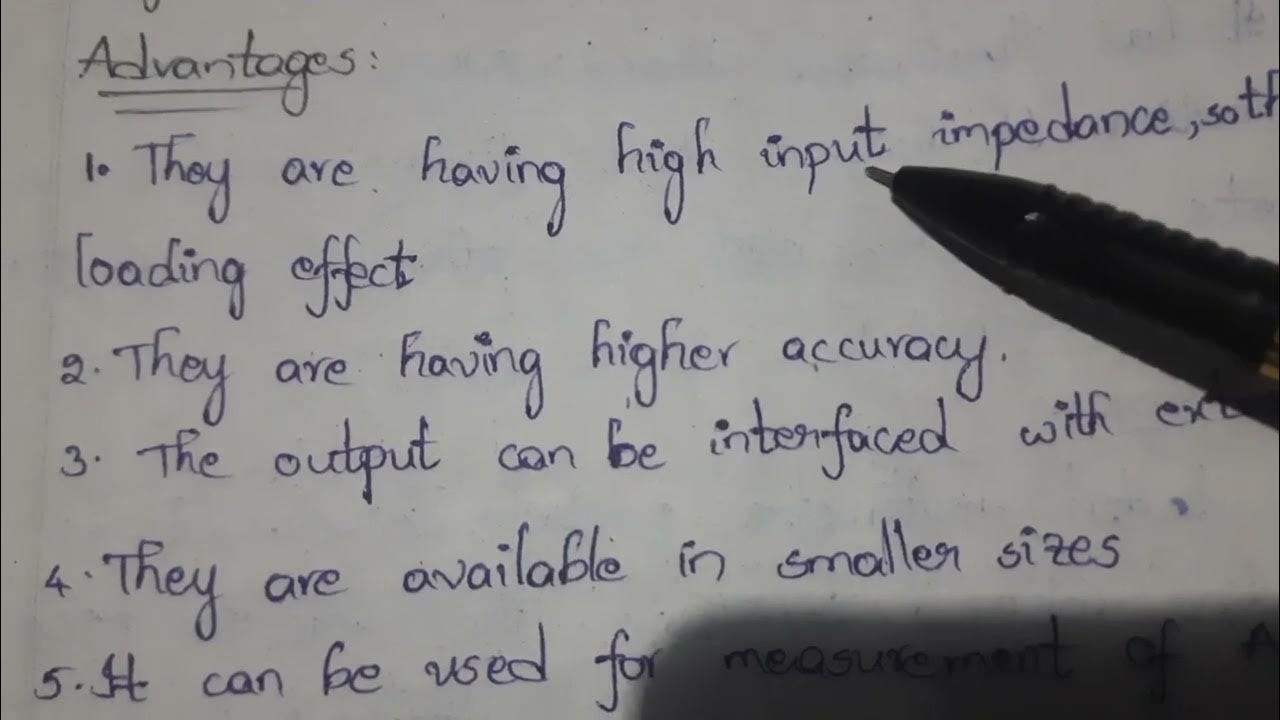 Advantages:
1. They are having high input impedance, so th
loading effect
2. They are having higher accuracy.
3. The output can be interfaced with ext
4. They are available in smaller sizes
5. It can be used for measurement of A